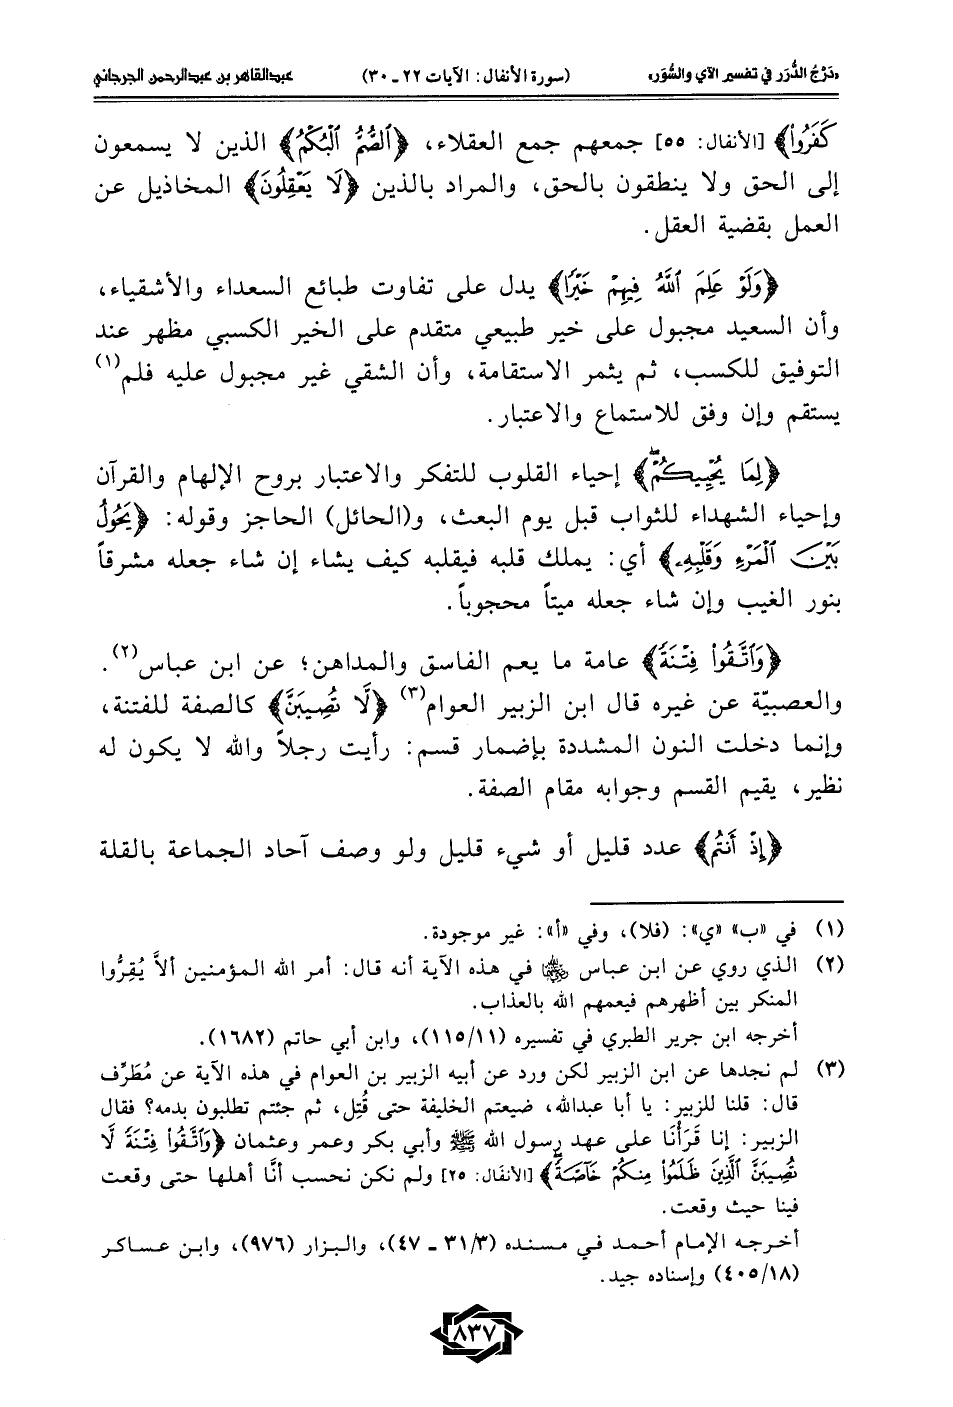 «دَرْجُ الدُّرَر في تفسير الآي والسُّوَر» (سورة الأنفال: الآيات ٢٢ ـ ٣٠) عبدالقاهر بن عبدالرحمن الجرجاني
كَفَرُوا﴾ [الأنفال: ٥٥] جمعهم جمع العقلاء، ﴿الصُّمُّ الْبُكْمُ﴾ الذين لا يسمعون
إلى الحق ولا ينطقون بالحق، والمراد بالذين ﴿لَا يَعْقِلُونَ﴾ المخاذيل عن
العمل بقضية العقل.
﴿وَلَوْ عَلِمَ اللَّهُ فِيهِمْ خَيْرًا﴾ يدل على تفاوت طبائع السعداء والأشقياء،
وأن السعيد مجبول على خير طبيعي متقدم على الخير الكسبي مظهر عند
التوفيق للكسب، ثم يثمر الاستقامة، وأن الشقي غير مجبول عليه فلم(١)
يستقم وإن وفق للاستماع والاعتبار.
﴿لِمَا يُحْيِيكُمْ﴾ إحياء القلوب للتفكر والاعتبار بروح الإلهام والقرآن
وإحياء الشهداء للثواب قبل يوم البعث، و(الحائل) الحاجز وقوله: ﴿يَحُولُ
بَيْنَ الْمَرْءِ وَقَلْبِهِ﴾ أي: يملك قلبه فيقلبه كيف يشاء إن شاء جعله مشرقاً
بنور الغيب وإن شاء جعله ميتاً محجوباً.
﴿وَاتَّقُوا فِتْنَةً﴾ عامة ما يعم الفاسق والمداهن؛ عن ابن عباس(٢).
والعصبيّة عن غيره قال ابن الزبير العوام(٣) ﴿لَّا تُصِيبَنَّ﴾ كالصفة للفتنة،
وإنما دخلت النون المشددة بإضمار قسم: رأيت رجلاً والله لا يكون له
نظير، يقيم القسم وجوابه مقام الصفة.
﴿إِذْ أَنتُمْ﴾ عدد قليل أو شيء قليل ولو وصف آحاد الجماعة بالقلة
(١) في «ب» «ي»: (فلا)، وفي «أ»: غير موجودة.
(٢) الذي روي عن ابن عباس ﵄ في هذه الآية أنه قال: أمر الله المؤمنين ألاَّ يُقِرُّوا
المنكر بين أظهرهم فيعمهم الله بالعذاب.
أخرجه ابن جرير الطبري في تفسيره (١١٥/١١)، وابن أبي حاتم (١٦٨٢).
(٣) لم نجدها عن ابن الزبير لكن ورد عن أبيه الزبير بن العوام في هذه الآية عن مُطَرِّف
قال: قلنا للزبير: يا أبا عبدالله، ضيعتم الخليفة حتى قُتِل، ثم جئتم تطلبون بدمه؟ فقال
الزبير: إنا قَرَأْنَا على عهد رسول الله ﷺ وأبي بكر وعمر وعثمان ﴿وَاتَّقُوا فِتْنَةً لَّا
تُصِيبَنَّ الَّذِينَ ظَلَمُوا مِنكُمْ خَاصَّةً﴾ [الأنفال: ٢٥] ولم نكن نحسب أنَّا أهلها حتى وقعت
فينا حيث وقعت.
أخرجه الإمام أحمد في مسنده (٣١/٣ ـ ٤٧)، والبزار (٩٧٦)، وابن عساكر
(٤٠٥/١٨) وإسناده جيد.
٨٣٧